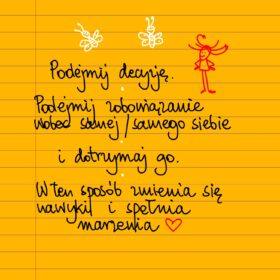 Podejmij decyzję.
Podejmij zobowiązanie
wobec samej/samego siebie
i dotrzymaj go.
W ten sposób zmienia się
nawyki i spełnia
marzenia